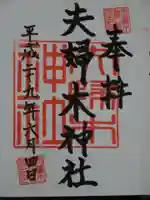 奉拝
夫婦木神社
平成二十九年六月四日